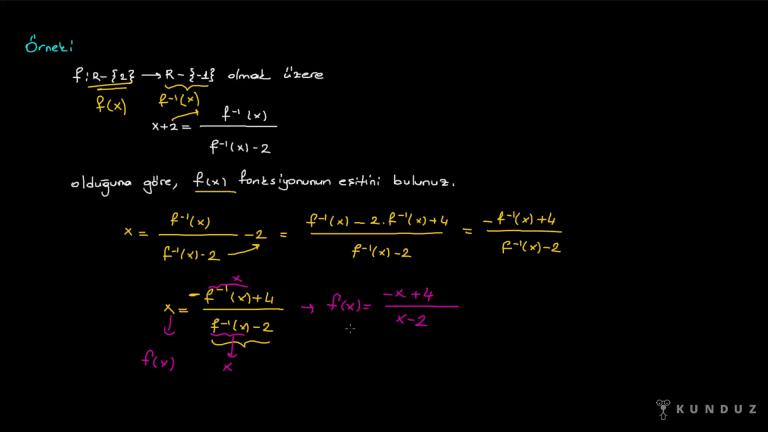 Örnek:
f: R-{2} → R-{-1} olmak üzere
f(x) f⁻¹(x)
x+2 = f⁻¹(x) / f⁻¹(x)-2
olduğuna göre, f(x) fonksiyonunun eşitini bulunuz.
x = f⁻¹(x) / f⁻¹(x)-2 -2 = f⁻¹(x) - 2.f⁻¹(x)+4 / f⁻¹(x)-2 = -f⁻¹(x)+4 / f⁻¹(x)-2
x
x = -f⁻¹(x)+4 / f⁻¹(x)-2 → f(x) = -x+4 / x-2
f(x) x
KUNDUZ